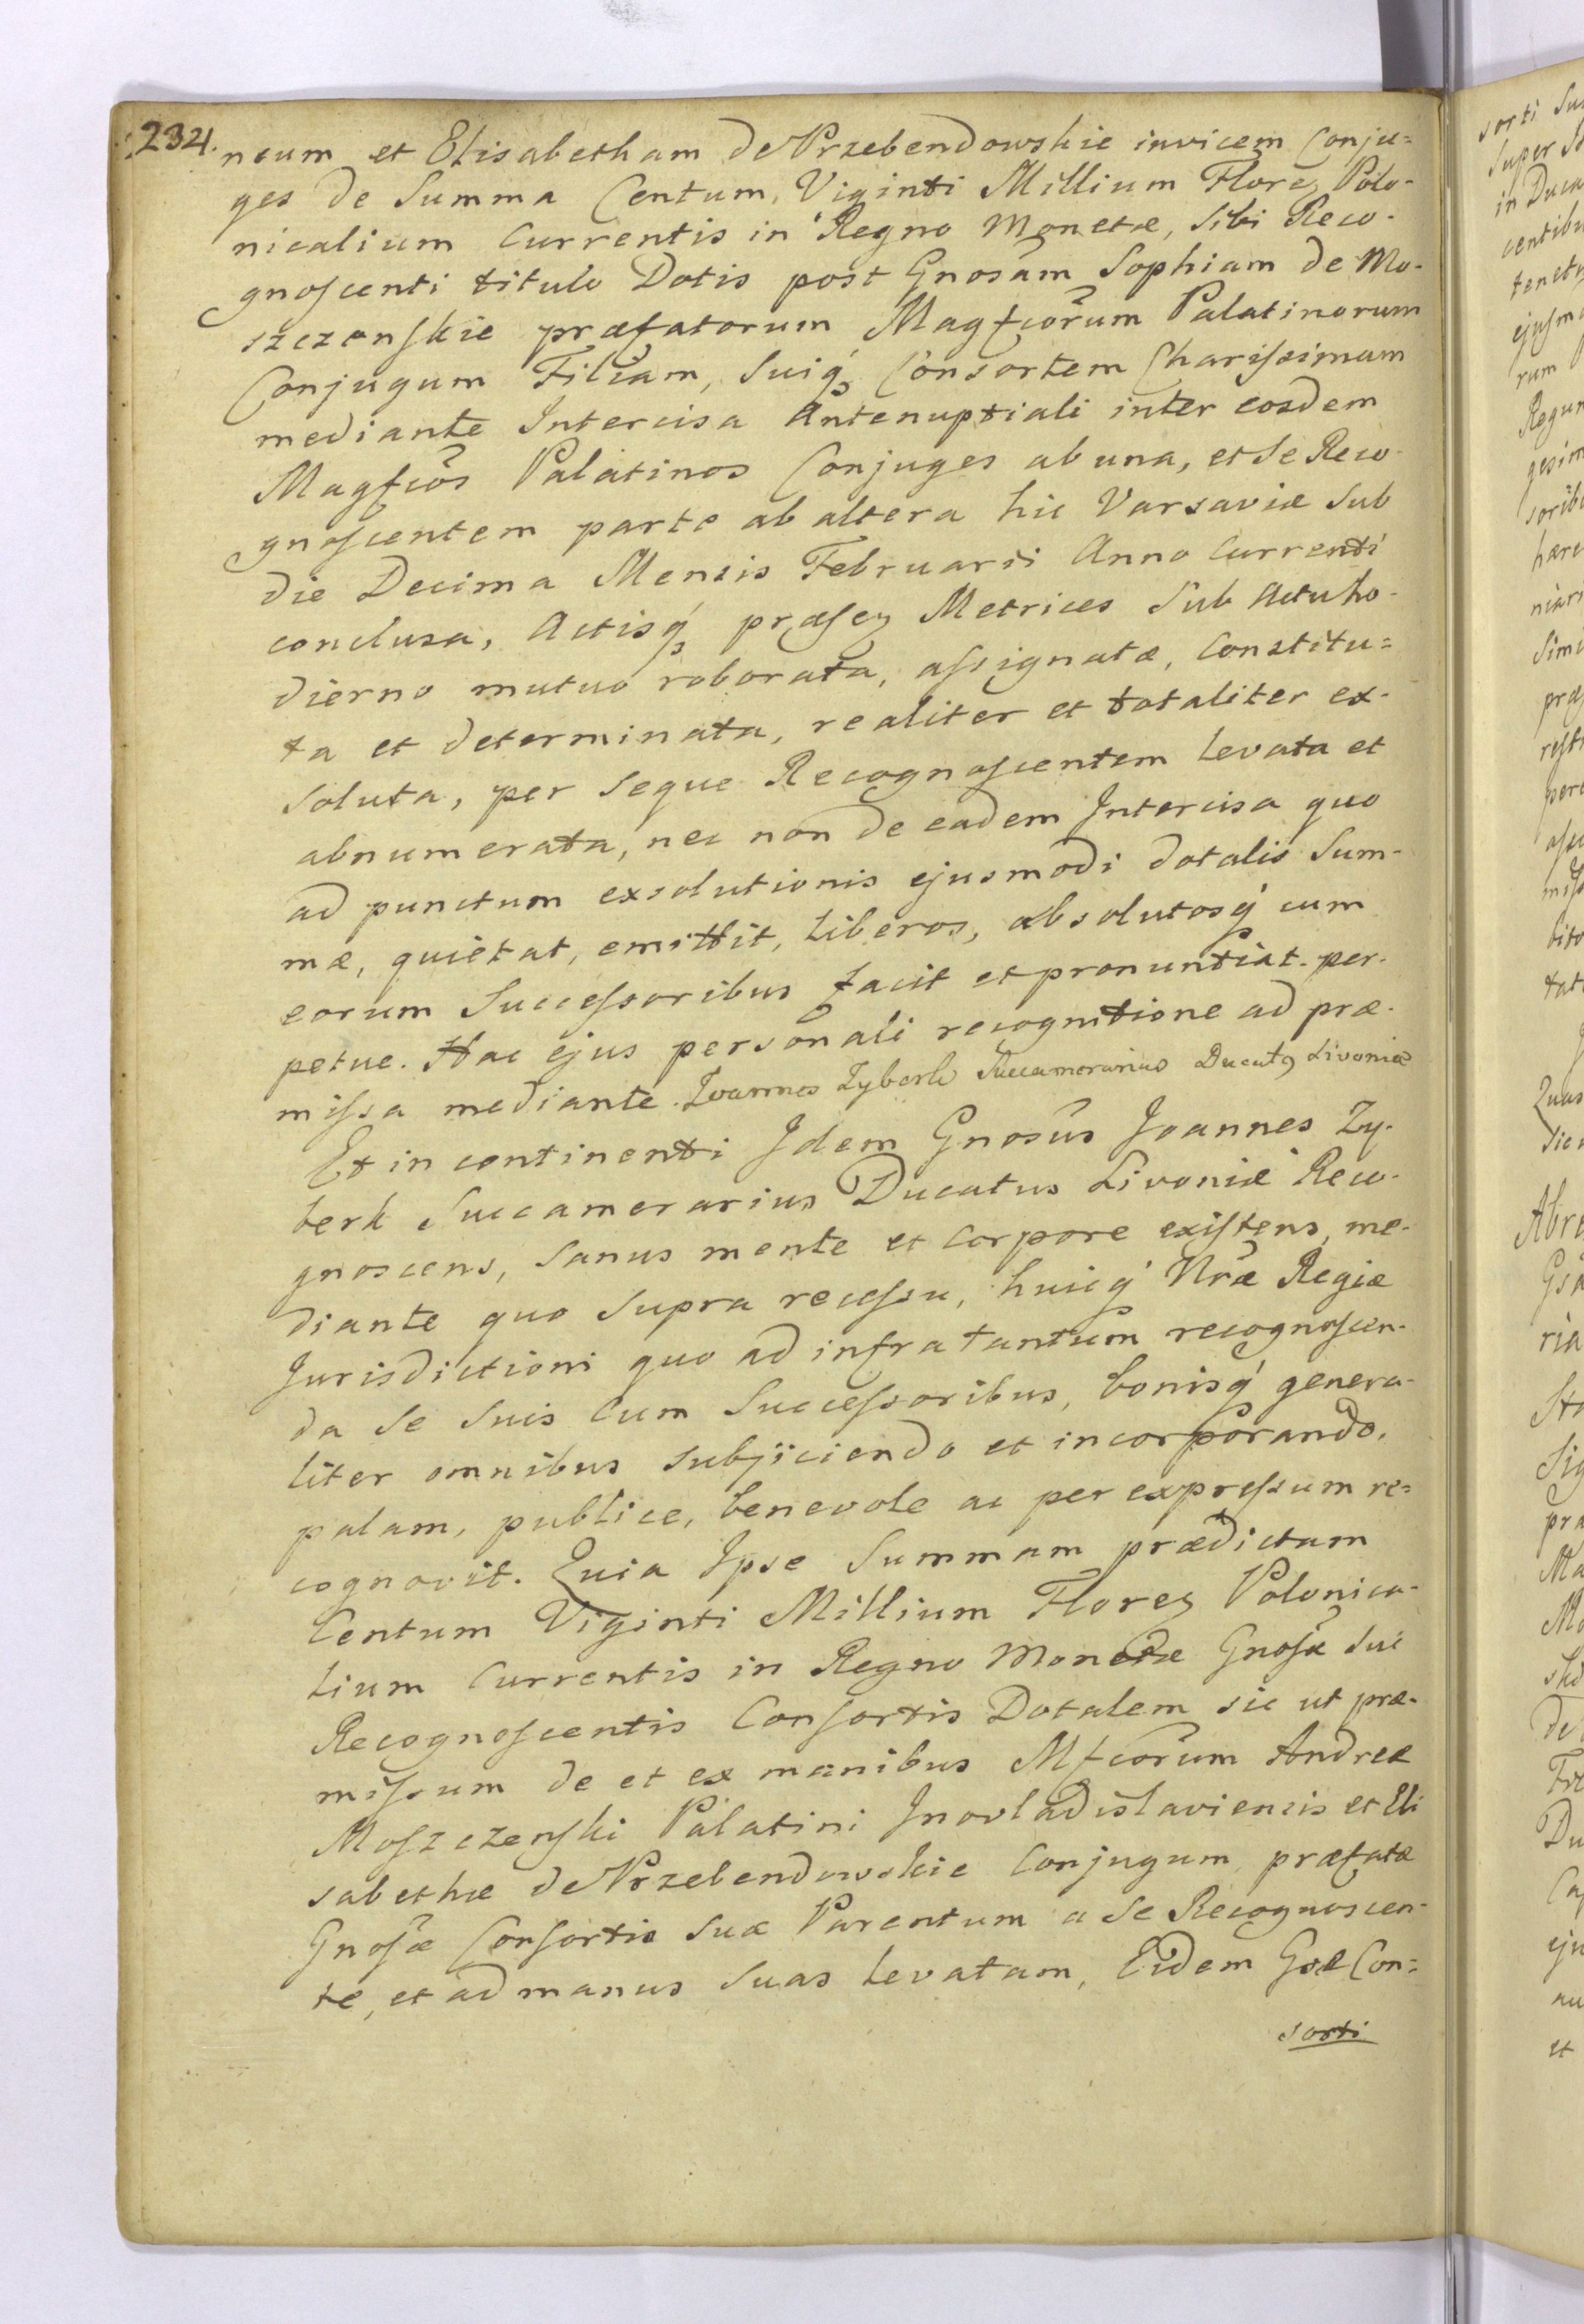 234.
neum et Elisabetham de Przebendowskie invicem Conju=
ges de Summa Centum, Viginti Millium Floreꝫ Polo-
nicalium Currentis in Regno Monetæ, Sibi Reco-
gnoscenti titulo Dotis post Gnosam Sophiam de Mo-
szczenskie præfatorum Magfcorum Palatinorum
Conjugum Filiam, Suiq́ Consortem Charissimam
mediante Intercisa Antenuptiali inter eosdem
Magfcos Palatinos Conjuges ab una, et Se Reco-
gnoscentem parte ab altera hic Varsaviæ Sub
die Decima Mensis Februarii Anno Currenti
conclusa, Actisq́ præseꝫ Metrices Sub Actu ho-
dierno mutuo roborata, assignatæ, Constitu=
ta et determinata, realiter et totaliter ex-
soluta, per Seque Recognoscentem Levata et
abnumerata, nec non de eadem Intercisa quo
ad punctum exsolutionis ejusmodi dotalis Sum-
mæ, quietat, emittit, Liberos, absolutosq́ cum
eorum Successoribus facit et pronuntiat per-
petue. Hac ejus personali recognitione ad præ-
missa mediante. Joannes Zyberk Succamerarius Ducatꝯ Livoniæ
Et in continenti Idem Gnosus Joannes Zy-
berk Succamerarius Ducatus Livoniæ Reco-
gnoscens, Sanus mente et Corpore existens, me-
diante quo Supra recessu, huicq́ Nræ Regiæ
Jurisdictioni quo ad infra tantum recognoscen-
da Se Suis Cum Successoribus, bonisq́ genera-
liter omnibus Subjiciendo et incorporando,
palam, publice, benevole ac per expressum re=
cognovit. Quia Ipse Summam prædictam
Centum Viginti Millium Floreꝫ Polonica-
lium Currentis in Regno Monetæ Gnosæ Sui
Recognoscentis Consortis Dotalem sic ut præ-
missum de et ex manibus Mfcorum Andreæ
Moszczenski Palatini Inovladislaviensis et Eli
sabethæ de Przebendowskie Conjugum, præfatæ
Gnosæ Consortis Suæ Parentum a Se Recognoscen-
te, et ad manus Suas Levatam, Eidem Gsæ Con=
sorti